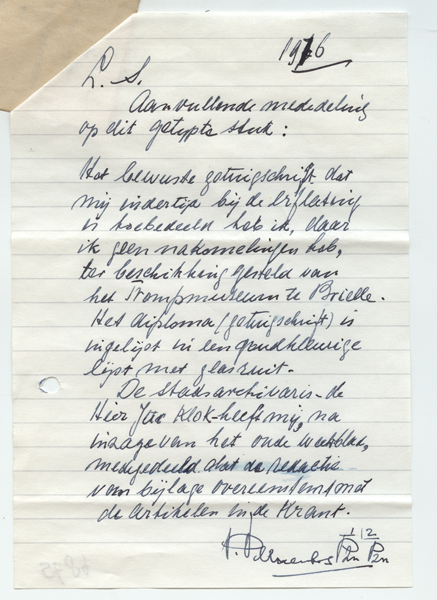 1976
L. S.
Aanvullende mededeling
op dit getypte stuk:
Het bewuste getuigschrift dat
mij indertijd bij de erflating
is toebedeeld heb ik, daar
ik geen nakomelingen heb,
ter beschikking gesteld van
het Trompmuseum te Brielle.
Het diploma (getuigschrift) is
ingelijst in een goudkleurige
lijst met glasruit.
De stadsarchivaris - de
Heer Klok - heeft mij, na
inzage van het oude weekblad,
medegedeeld dat de redactie
van bijlage overeenstemd met
de artikelen in de Krant.